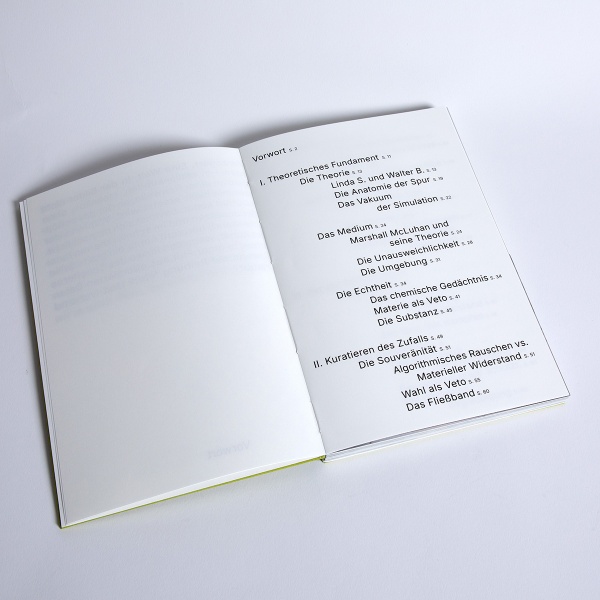 Vorwort S. 3
I. Theoretisches Fundament S. 11
Die Theorie S. 12
Linda S. und Walter B. S. 12
Die Anatomie der Spur S. 19
Das Vakuum
der Simulation S. 22
Das Medium S. 24
Marshall McLuhan und
seine Theorie S. 24
Die Unausweichlichkeit S. 28
Die Umgebung S. 31
Die Echtheit S. 34
Das chemische Gedächtnis S. 36
Materie als Veto S. 41
Die Substanz S. 45
II. Kuratieren des Zufalls S. 49
Die Souveränität S. 51
Algorithmisches Rauschen vs.
Materieller Widerstand S. 51
Wahl als Veto S. 55
Das Fließband S. 60